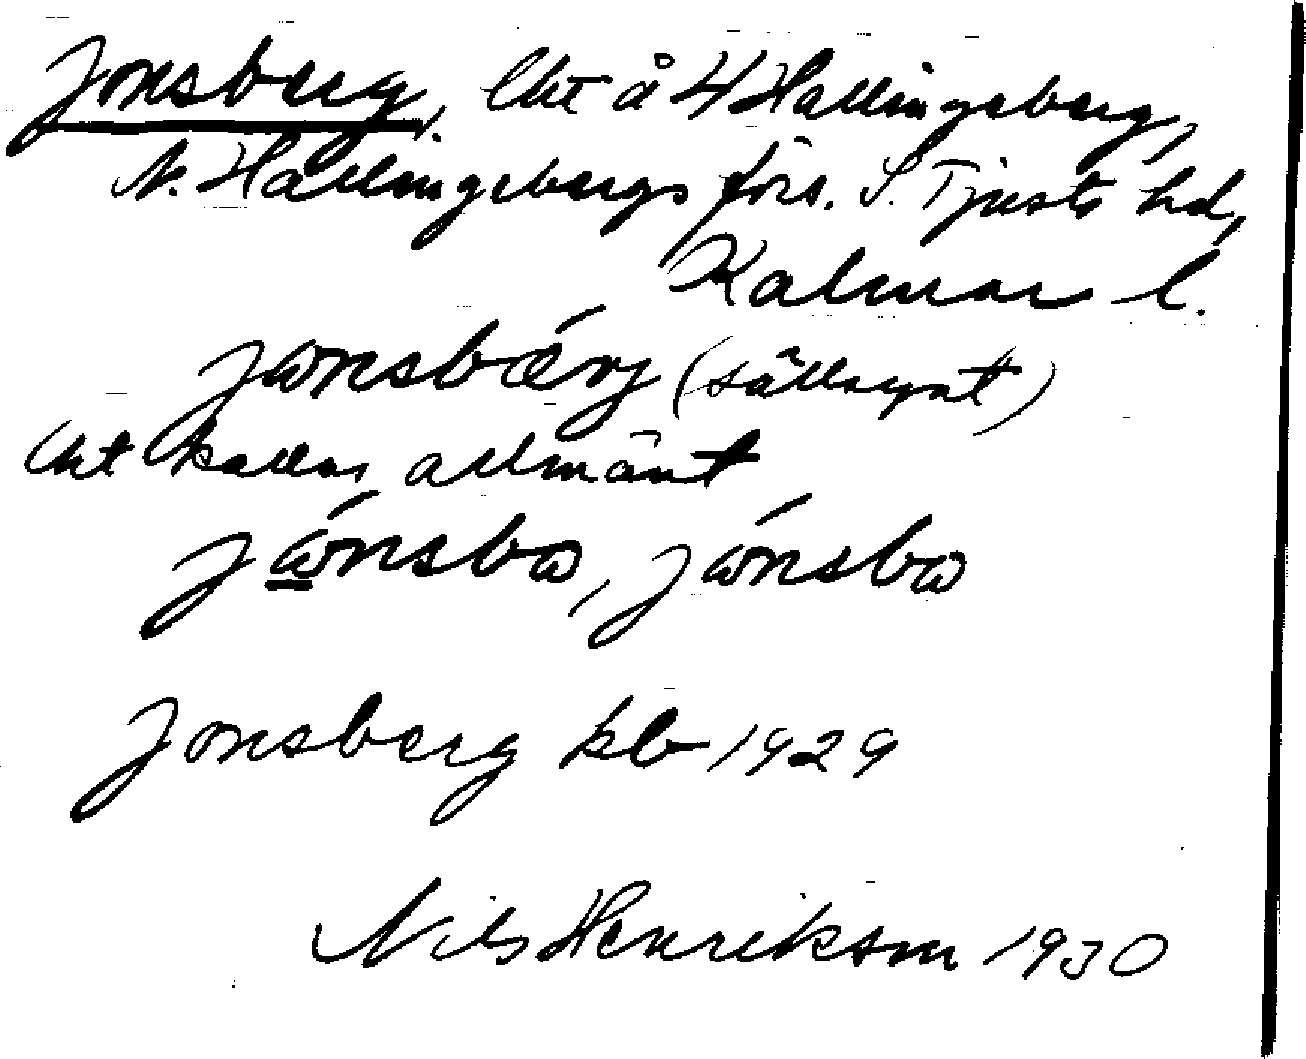 Jonsberg, lht å 4 Hallingeberg,
N. Hallingebergs förs. S. Tjusts hd,
Kalmar l.
jωnsbærj (sällsynt)
lht kallas allmänt
jώnsbω, jώnsbω
Jonsberg kb 1929
Nils Henrikson 1930